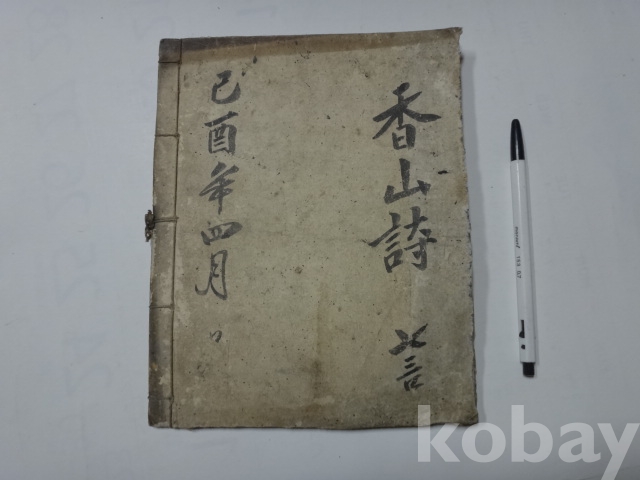 香山詩
己酉年四月
kobay